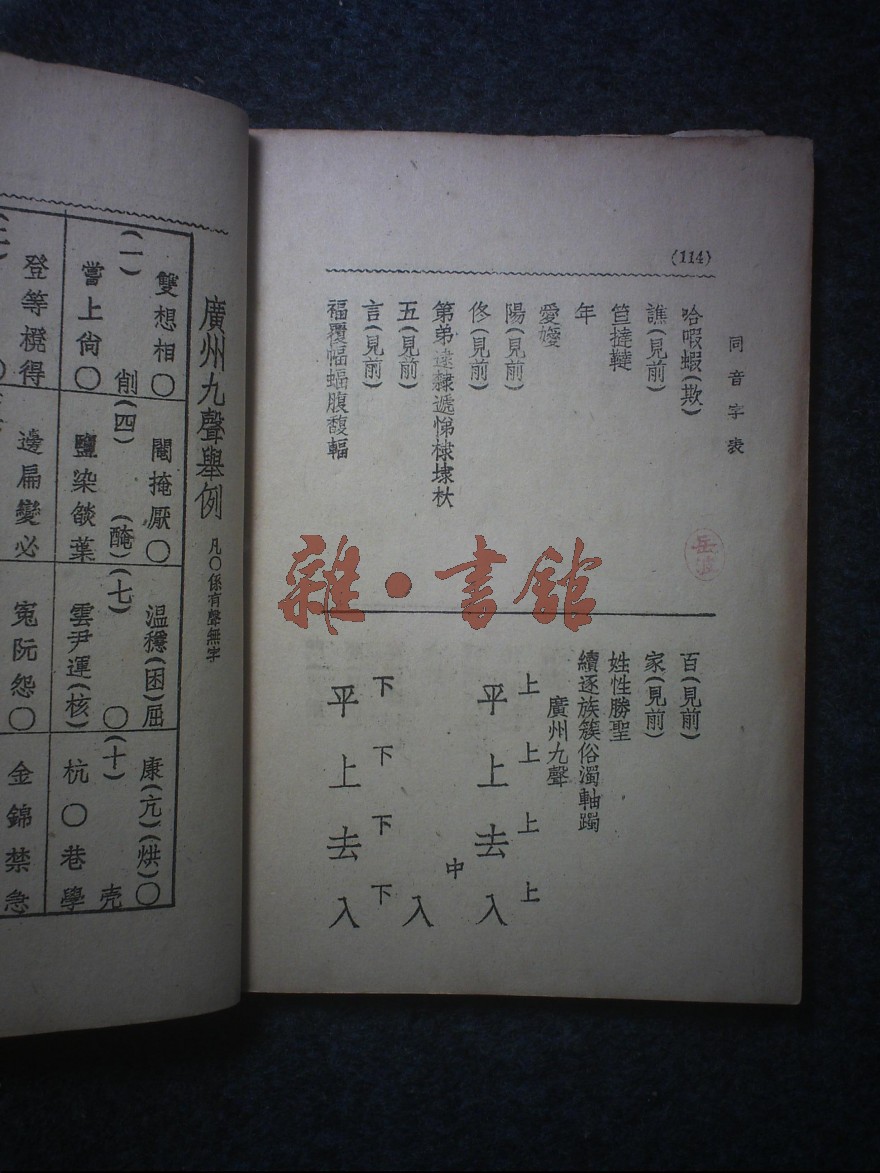 (114)
同音字表
哈嘏蝦(欺)
譙(見前)
笪撻韃
年
愛嬡
陽(見前)
佟(見前)
第弟逮隸遞悌棣埭杕
五(見前)
言(見前)
福覆幅蝠腹馥輻
百(見前)
家(見前)
姓性勝聖
續逐族簇俗濁軸躅
廣州九聲
上上上上
平上去入
中
入
下下下下
平上去入
雜·書館
岳
廣州九聲舉例 凡〇係有聲無字
(一)
雙想相〇
削
嘗上尙〇
(四)
閹掩厭〇
(醃)
鹽染燄葉
(七)
溫穩(困)屈
〇
雲尹運(核)
(十)
康(亢)(烘)〇
壳
杭〇巷學
登等櫈得
邊扁變必
寃阮怨〇
金錦禁急